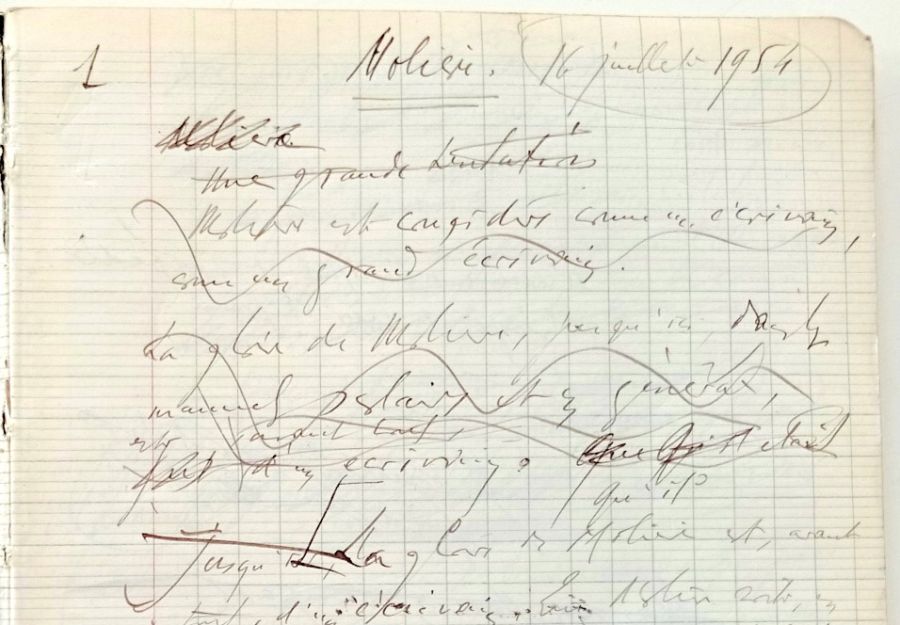 1 Molière. 16 juillet 1954
Molière
Une grande tentation
Molière est considéré comme un écrivain,
comme un grand écrivain.
La gloire de Molière, jusqu'ici, dans les
manuels scolaires et en général,
est avant tout,
d'un écrivain. était
qu'il
Jusqu'ici, La gloire de Molière est, avant
tout, d'un écrivain.